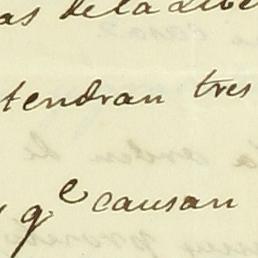 as de la Libe
tendran tres
q.^e causan